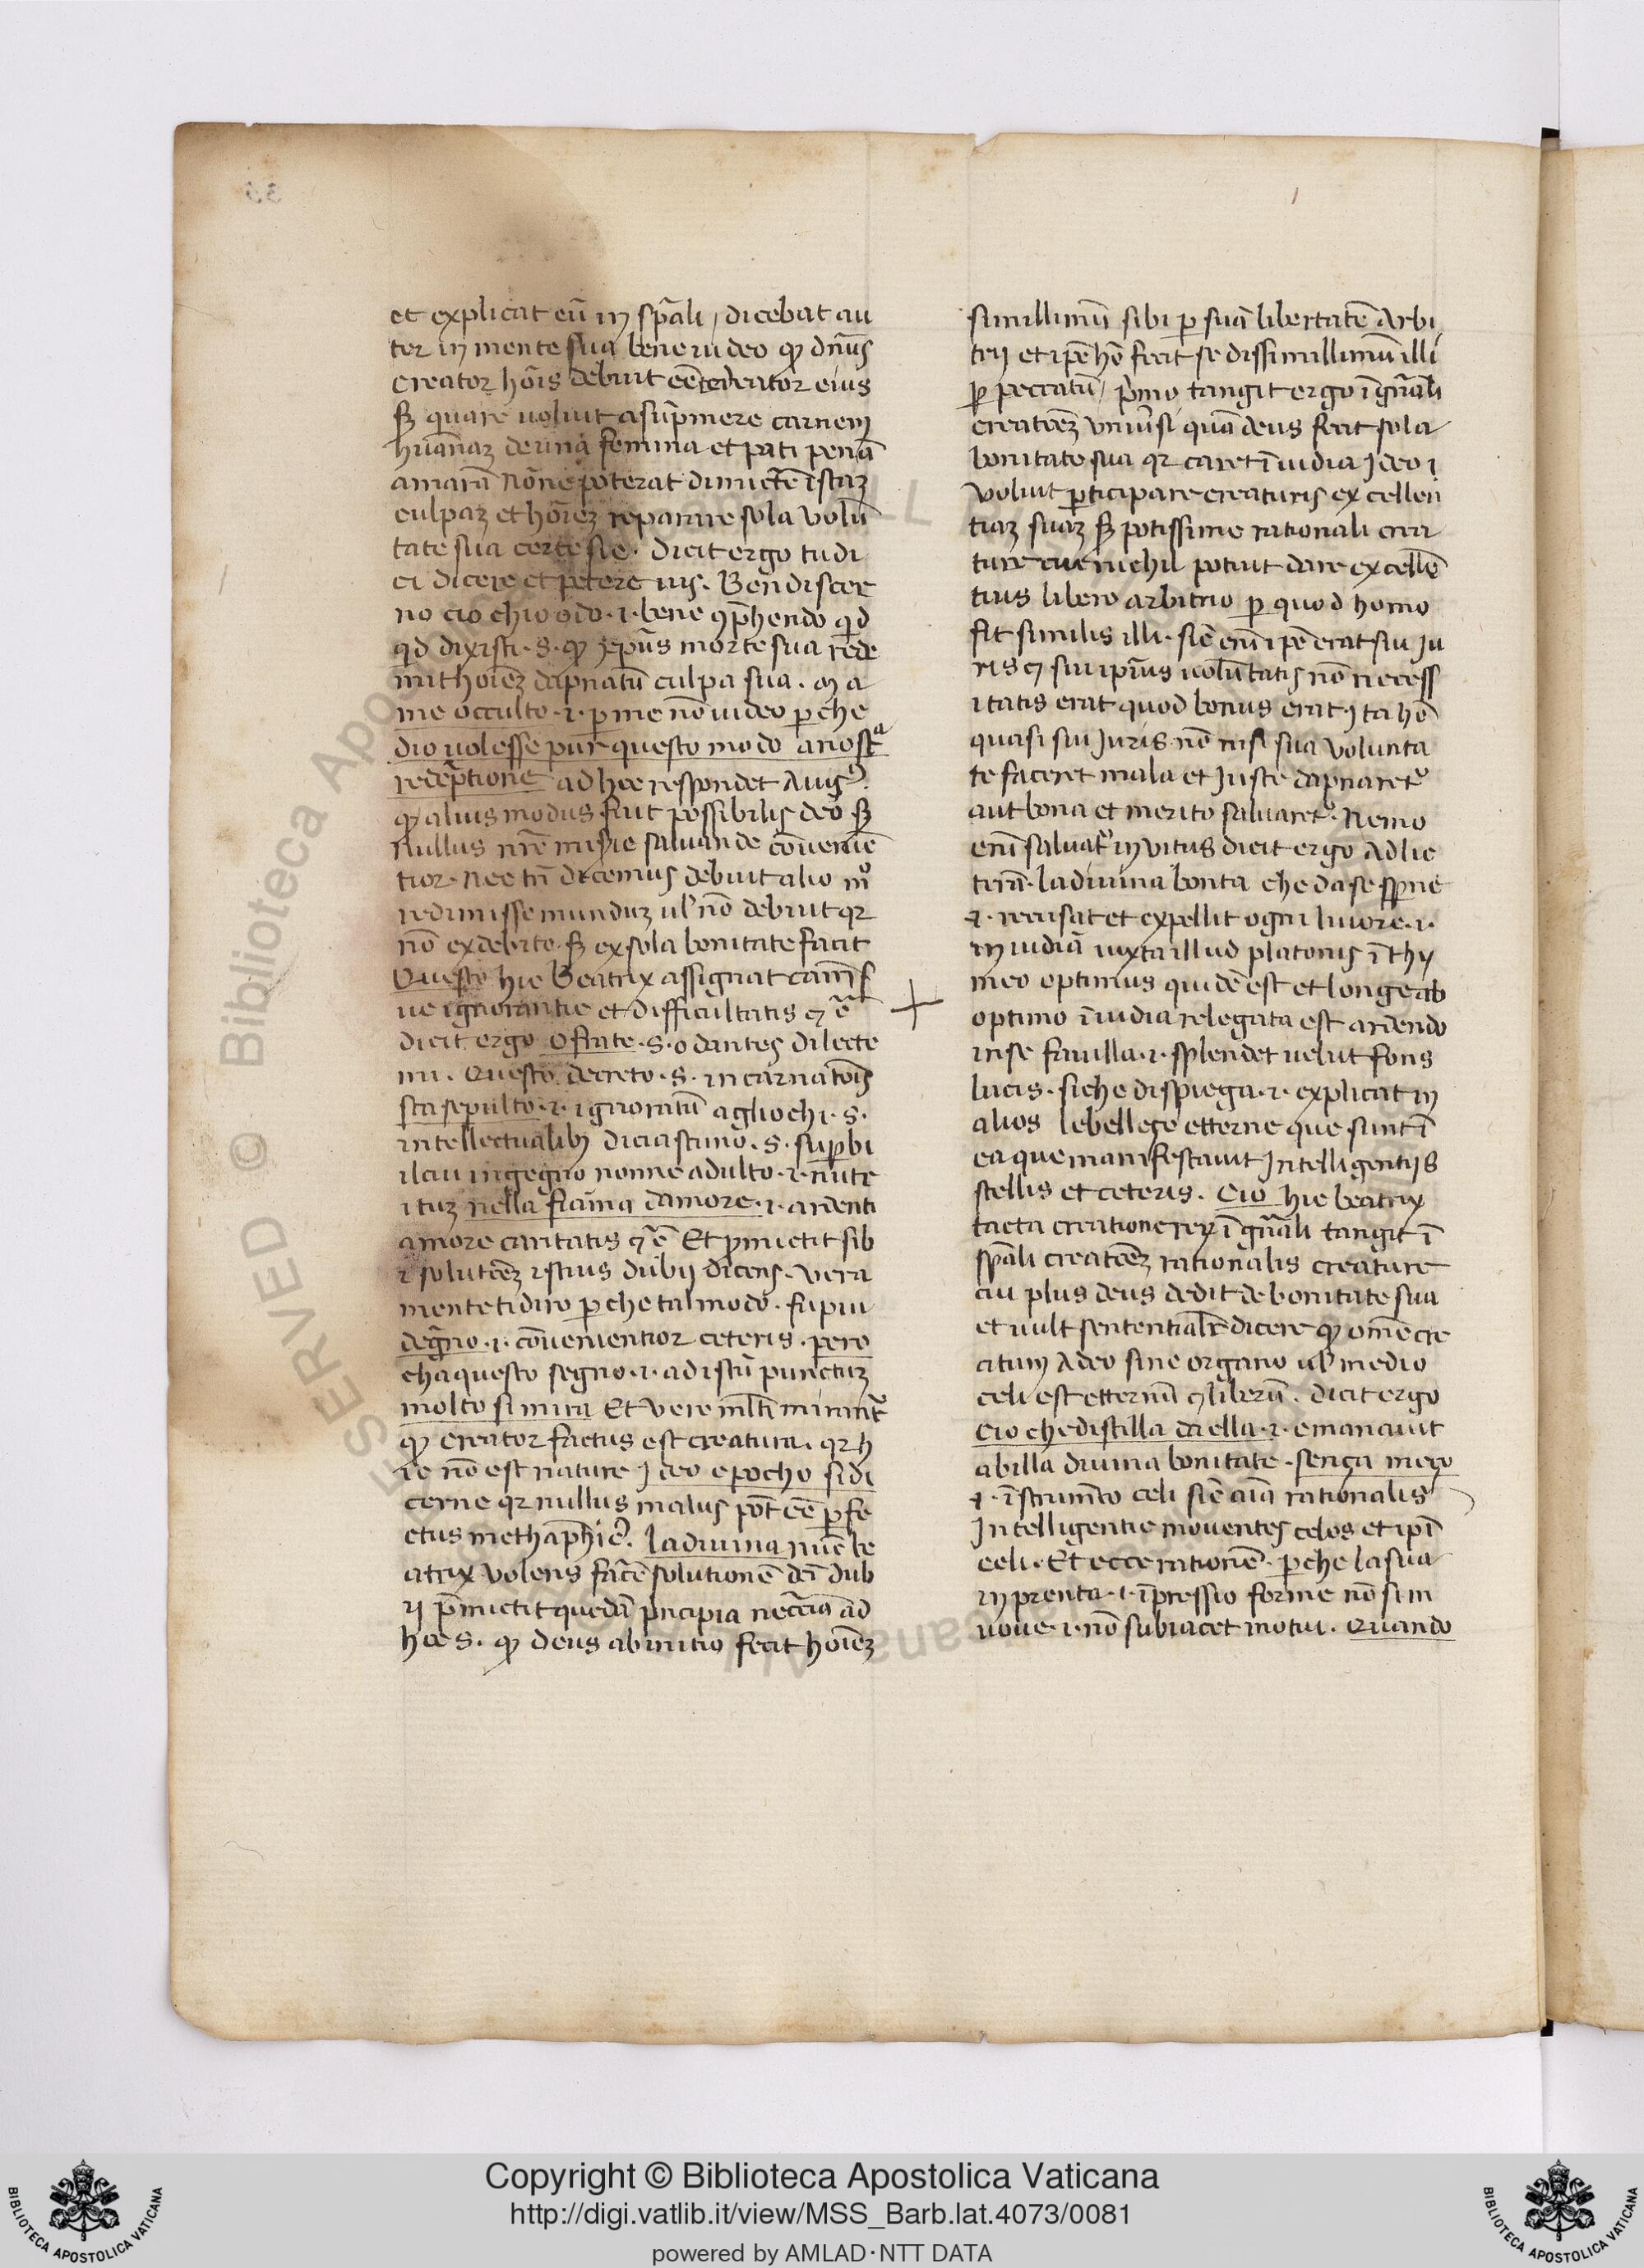 et explicat eū in sp̄ali / dicebat au
tor in mente sua bene uideo qͦ dn̄us
creator hōis debuit eē recreator eius
sꝫ quare uoluit asūpmere carnem
hūanaꝫ de una femina et pati penā
amarā nōne poterat dimictē istaꝫ
culpaꝫ et hōieꝫ reparare sola volū
tate sua certe sic. dicit ergo tu di
ci dicere et petere uis. Ben discer
no cio chio odo .i. bene ꝯp̄hendo qd
qd dixisti .s. qͦ xp̄us morte sua rede
mit hoīeꝫ dāpnatū culpa sua. m a
me occulto .i. p me nō uideo p che
dio uolesse pur questo modo a nostᵃ
redēptione ad hec respondet Aug9.
qͦ alius modus fuit possibilis deo sꝫ
nullus nr̄e mis̄ie saluande cōueniē
tior. nec tn̄ dicemus debuit alio mͦ
redimisse munduꝫ ul' nō debuit qr
nō ex debito sꝫ ex sola bonitate facit
Questo hic Beatrix assignat cām s
ue ignorantie et difficultatis ꝫ ē
dicit ergo o frate .s. o dantes dilecte
mi. Questo decreto .s. incarnatōis
sta sepulto .i. ignoratū a gliochi .s.
intellectualibꝫ di ciascuno .s. suꝑbi
il cui ingegno nonne adulto .i. nutr
ituꝫ nella fiāma damore .i. ardenti
amore caritatis ꝫ ē Et ꝓmictit sib
i solutōeꝫ istius dubij dicens. vera
mente ti diro p che tal modo. fu piu
degno .i. cōuenientior ceteris. pero
cha questo segno .i. ad istū punctuꝫ
molto si mira Et vere ml̄ti mirantͬ
qͦ creator factus est creatura. qr h
ic nō est nature ideo e pocho si di
cerne qr nullus malus pot̄ eē ꝑfe
ctus methaph̄ic9. la diuina nūc be
atrix volens facē solutionē dc̄i dub
ij p̄mictit quedā pricipia nec̄cia ad
hec .s. qͦ deus ab initio fecit hoīeꝫ
simillimū sibi p suā libertatē Arbi
trij et ipē hō fecit se dissimillimū illi
ꝑ peccatū / primo tangit ergo ī gn̄ali
creatōeꝫ vniūsi quā deus fecit sola
bonitate sua qr caret īuidia ideo i
voluit ꝑticipare creaturis excellen
tiaꝫ suaꝫ sꝫ potissime rationali crea
ture cui nichil potuit dare excellē
tius libero arbitrio p quod homo
fit similis illi. sic̄ enī ipē erat sui ju
ris ꝫ sui ipīus uolūtatis nō necess
itatis erat quod bonus erat ita hō
quasi sui juris nō nisi sua volunta
te faceret mala et juste dāpnaretͬ
aut bona et merito saluaretͬ. Nemo
enī saluatͬ inuitus dicit ergo ad lic
terā. la diuina bonta che da se sperne
.i. recusat et expellit ogni liuore .i.
inuidiā iuxta illud platonis ī thy
meo optimus quidē est et longe ab
optimo īuidia relegata est ardendo
in se fauilla .i. splendet uelut fons
lucis. si che dispiega .i. explicat in
alios le bellece etterne que sunt ī
ea que manifestauit intelligentijs
stellis et ceteris. Cio hic beatrix
tacta creatione rerꝝ ī gn̄ali tangit ī
sp̄ali creatōeꝫ rationalis creature
cui plus deus dedit de bonitate sua
et uult sententialr̄ dicere qͦ omē cre
atum a deo sine organo ul' medio
celi est etternū ꝫ liberū. dicit ergo
Cio che distilla da ella .i. emanauit
ab illa diuina bonitate. senca meço
.i. īstrumēto celi sic̄ aīa rationalis
Intelligentie mouentes celos et ipī
celi. Et ecce rationē. p che la sua
inprenta .i. īpressio forme nō si m
uoue .i. nō subiacet motui. Quando
Copyright © Biblioteca Apostolica Vaticana
http://digi.vatlib.it/view/MSS_Barb.lat.4073/0081
powered by AMLAD·NTT DATA
BIBLIOTECA APOSTOLICA VATICANA
BIBLIOTECA APOSTOLICA VATICANA